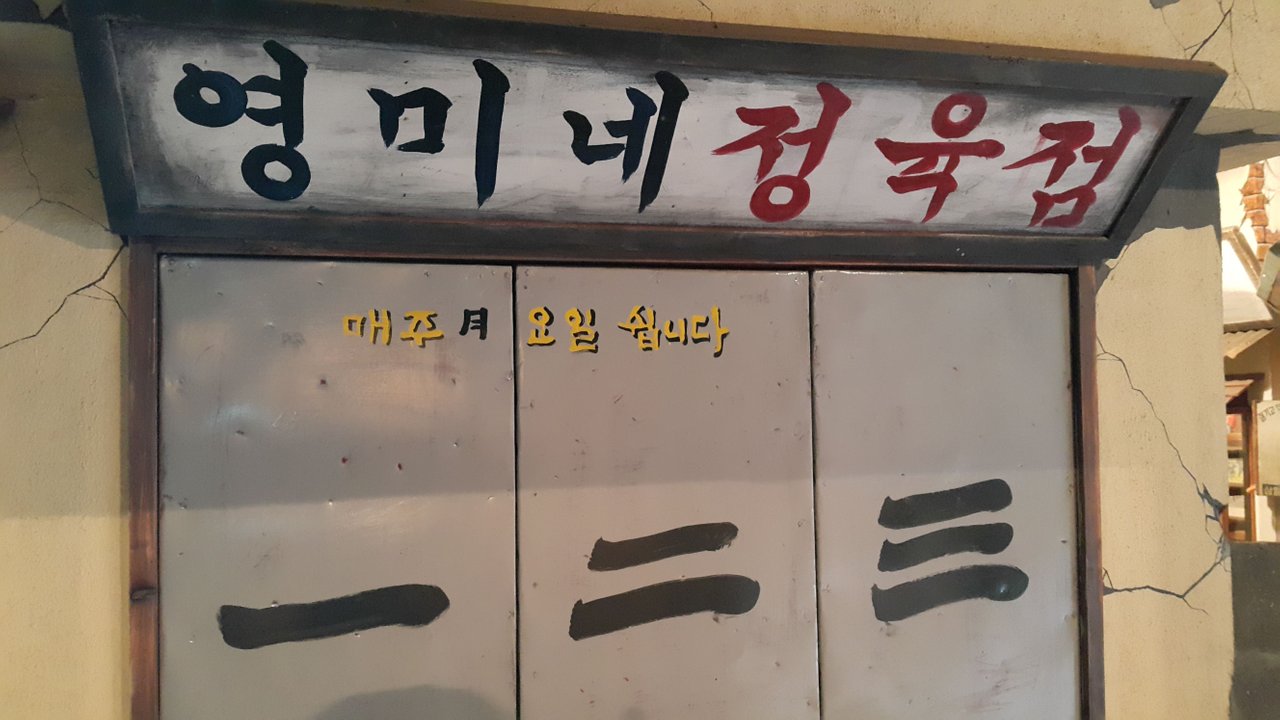 영미네 정육점
매주 요일 쉽니다
一 二 三